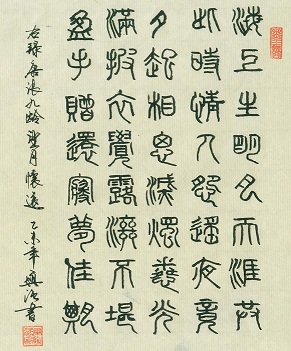 海上生明月天涯共
此時情人怨遙夜竟
夕起相思滅燭憐光
滿披衣覺露滋不堪
盈手贈還寢夢佳期
右録唐張九齡望月懷遠 乙未年 書